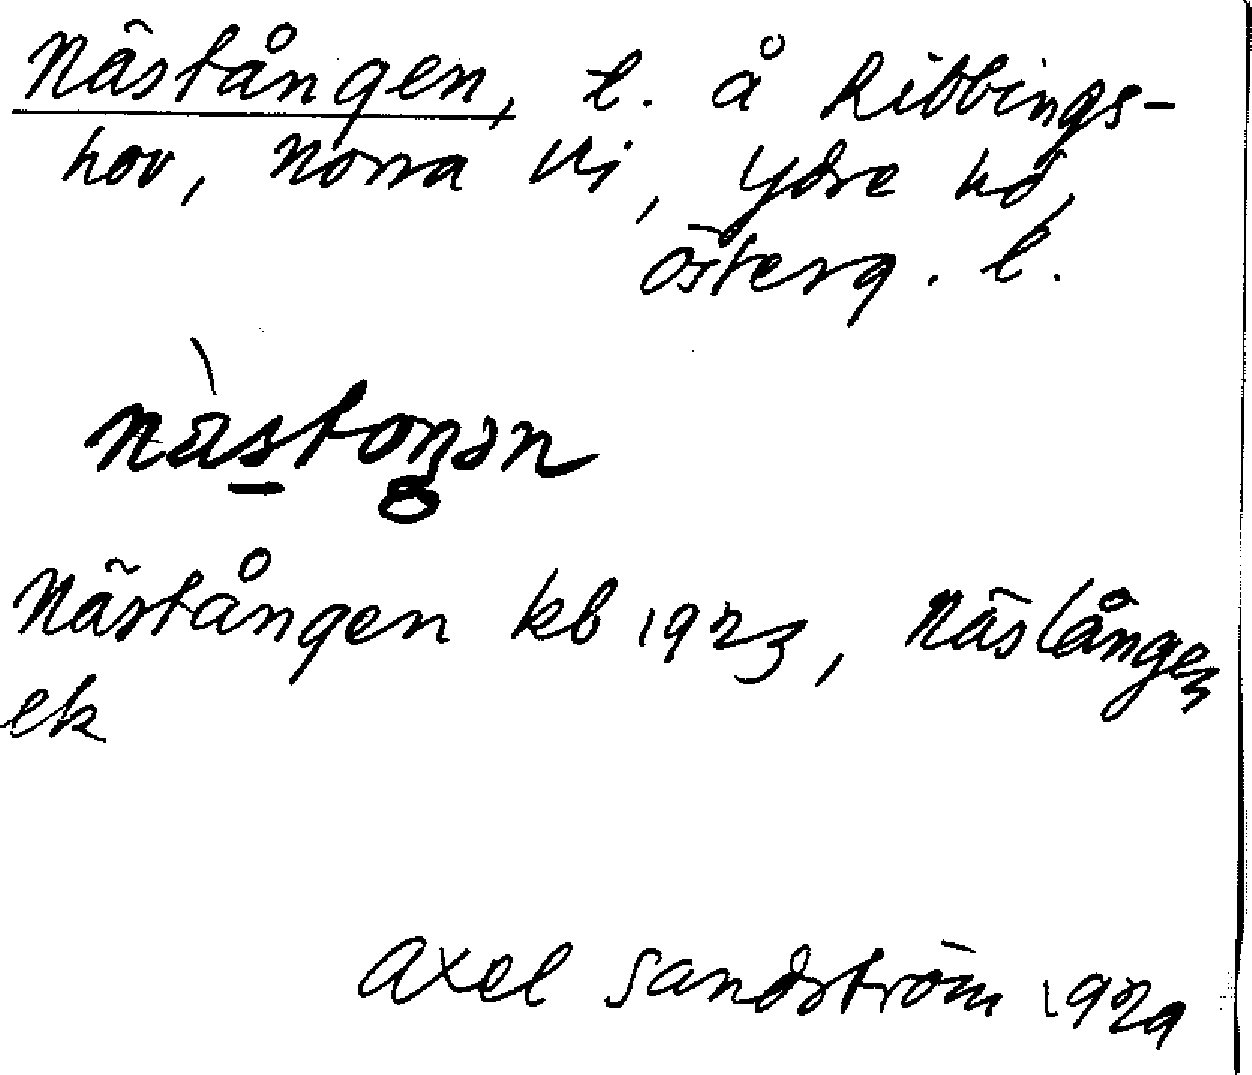 Nästången, t. å Ribbings-
hov, Norra Vi, Ydre hd,
Österg. l.
Nästången kb 1923, Näslången
ek
Axel Sandström 1929